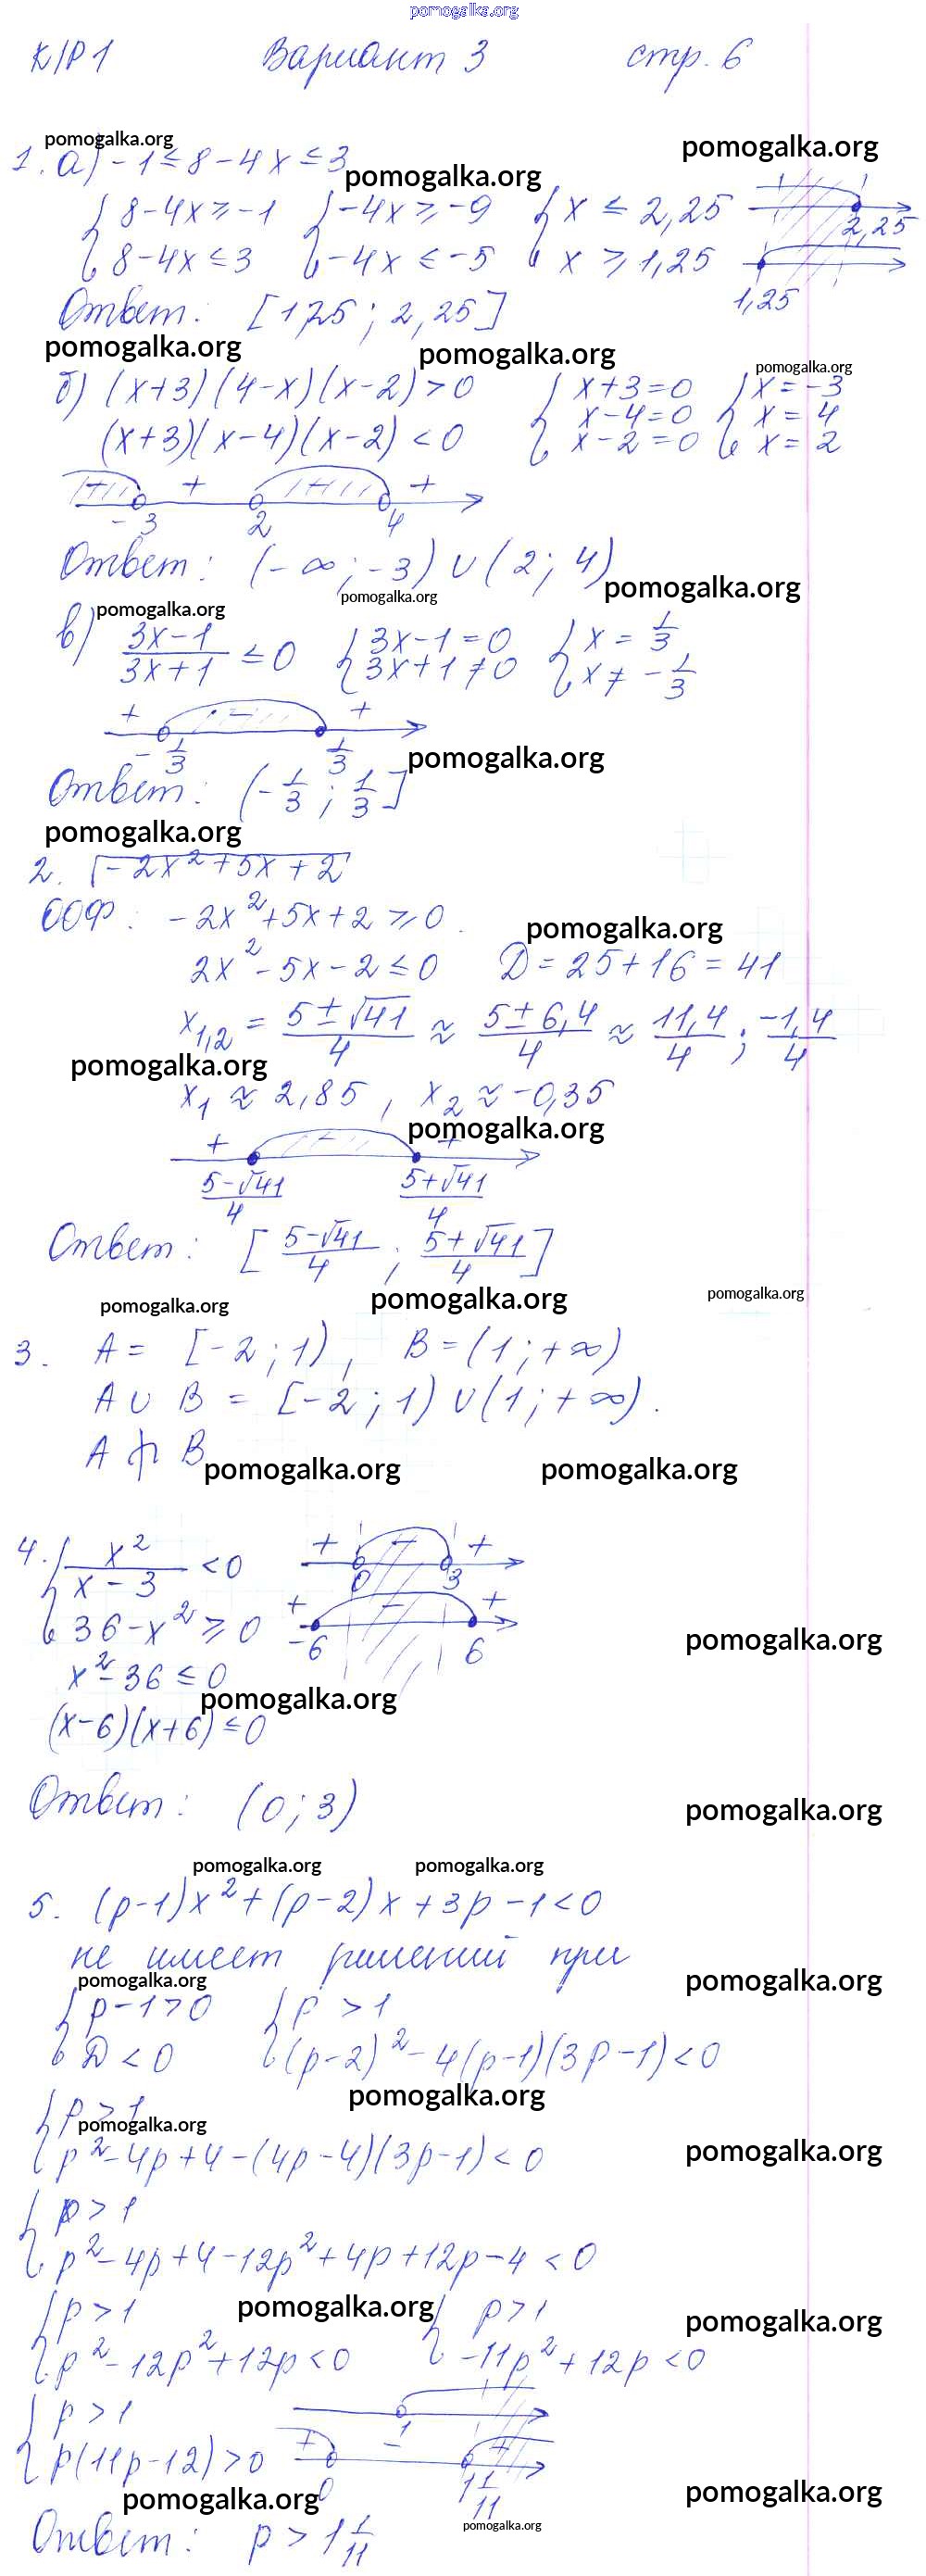 pomogalka.org
К/Р 1 Вариант 3 стр. 6
pomogalka.org pomogalka.org
1. а) -1 ≤ 8 - 4x ≤ 3
pomogalka.org
{ 8-4x ≥ -1 { -4x ≥ -9 { x ≤ 2,25 2,25
{ 8-4x ≤ 3 { -4x ≤ -5 { x ≥ 1,25 1,25
Ответ: [1,25 ; 2,25]
pomogalka.org pomogalka.org pomogalka.org
б) (x+3)(4-x)(x-2) > 0 { x+3=0 { x=-3
(x+3)(x-4)(x-2) < 0 { x-4=0 { x=4
{ x-2=0 { x=2
- + - +
-3 2 4
Ответ: (-∞; -3) ∪ (2; 4)
pomogalka.org pomogalka.org pomogalka.org
в) (3x-1)/(3x+1) ≤ 0 { 3x-1=0 { x = 1/3
{ 3x+1≠0 { x ≠ -1/3
+ - +
-1/3 1/3
pomogalka.org
Ответ: (-1/3 ; 1/3]
pomogalka.org
2. √(-2x²+5x+2)
ООФ: -2x²+5x+2 ≥ 0.
pomogalka.org
2x²-5x-2 ≤ 0 D = 25+16 = 41
x1,2 = (5±√41)/4 ≈ (5±6,4)/4 ≈ 11,4/4 ; -1,4/4
pomogalka.org
x1 ≈ 2,85 , x2 ≈ -0,35
pomogalka.org
+ - +
(5-√41)/4 (5+√41)/4
Ответ: [(5-√41)/4 ; (5+√41)/4]
pomogalka.org pomogalka.org pomogalka.org
3. A = [-2 ; 1) , B = (1 ; +∞)
A ∪ B = [-2 ; 1) ∪ (1 ; +∞).
A B
pomogalka.org pomogalka.org
4. { x²/(x-3) < 0 + - +
0 3
{ 36-x² ≥ 0 + - +
-6 6
pomogalka.org
x²-36 ≤ 0
pomogalka.org
(x-6)(x+6) ≤ 0
Ответ: (0 ; 3)
pomogalka.org
pomogalka.org pomogalka.org
5. (p-1)x²+(p-2)x+3p-1<0
не имеет решений при
pomogalka.org pomogalka.org
{ p-1>0 { p > 1
{ D < 0 { (p-2)²-4(p-1)(3p-1)<0
pomogalka.org
{ p > 1
pomogalka.org pomogalka.org
{ p²-4p+4-(4p-4)(3p-1)<0
{ p > 1
{ p²-4p+4-12p²+4p+12p-4 < 0
pomogalka.org pomogalka.org
{ p > 1 { p > 1
{ p²-12p²+12p<0 { -11p²+12p<0
{ p > 1 1
{ p(11p-12)>0 + - +
0 1 1/11
pomogalka.org pomogalka.org
pomogalka.org
Ответ: p > 1 1/11